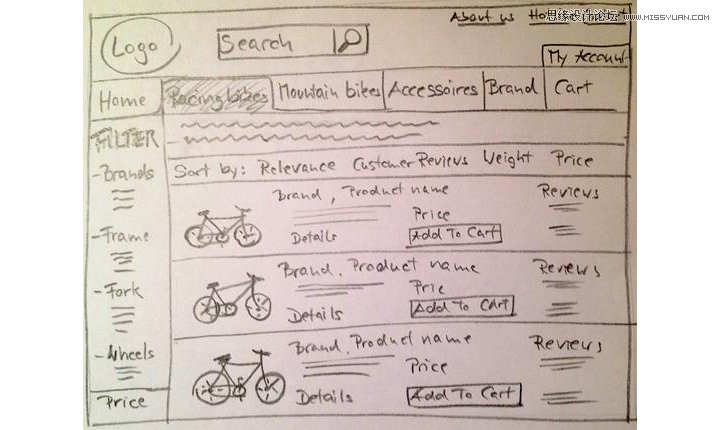 思缘设计论坛 WWW.MISSYUAN.COM
About us
Logo
Search
My Account
Home Racing bikes Mountain bikes Accessoires Brand Cart
FILTER
Sort by: Relevance Customer Reviews Weight Price
- Brands
Brand, Product name Reviews
Price
Details Add To Cart
- Frame
Brand, Product name Reviews
Price
- Fork
Details Add To Cart
Brand, Product name Reviews
- Wheels
Price
Details Add To Cart
Price